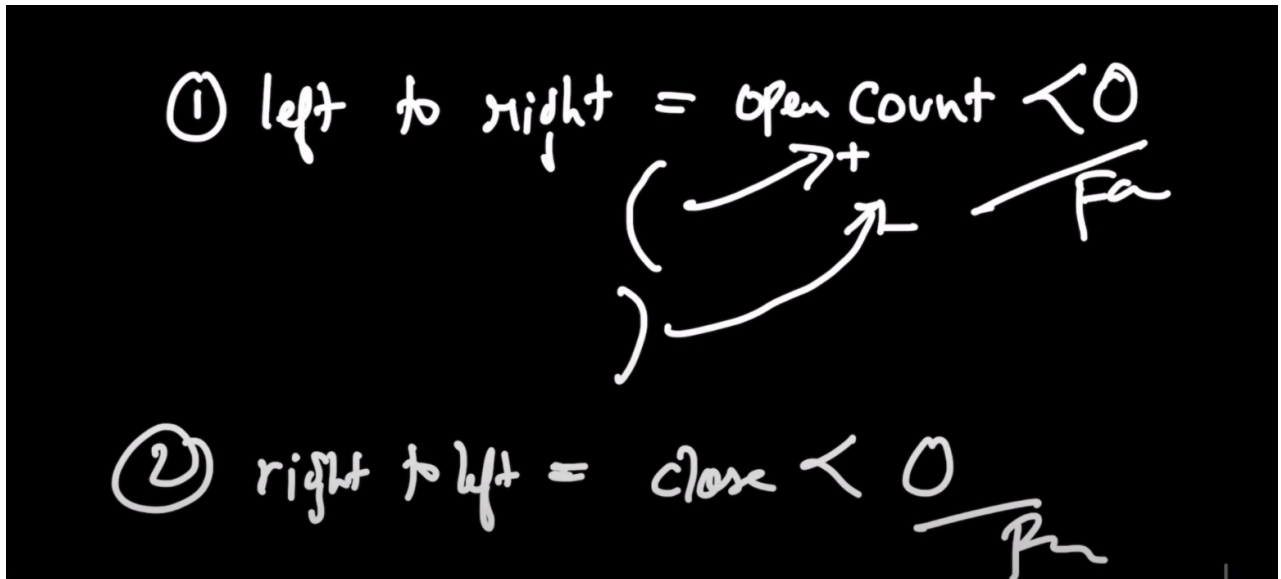 ① left to right = open count < 0
( → +
Fa
) → -
② right to left = close < 0